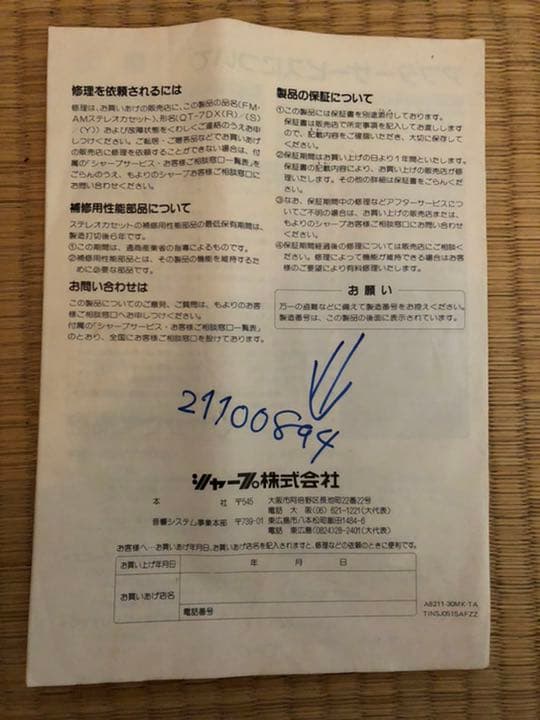 アフターサービスについて
修理を依頼されるには
修理は、お買いあげの販売店に、この製品の品名(FM·
AMステレオカセット)、形名(QT-7DX(R)/(S)
/(Y))および故障状態をくわしくご連絡のうえお申
しつけください。ご転居・ご贈答品などでお買いあげ
の販売店に修理を依頼することができない場合は、付
属の「シャープサービス・お客様ご相談窓口一覧表」を
ごらんのうえ、もよりのシャープお客様ご相談窓口に
お問い合わせください。
補修用性能部品について
ステレオカセットの補修用性能部品の最低保有期間は、
製造打切後6年です。
①この期間は、通商産業省の指導によるものです。
②補修用性能部品とは、その製品の機能を維持するため
に必要な部品です。
お問い合わせは
この製品についてのご意見、ご質問は、もよりのお客
様ご相談窓口へお申しつけください。
付属の「シャープサービス・お客様ご相談窓口一覧表」
のとおり、全国にお客様ご相談窓口を設けております。
製品の保証について
①この製品には保証書を別途添付しております。
保証書は販売店で所定事項を記入してお渡しします
ので、記載内容をご確認いただき、大切に保存して
ください。
②保証期間はお買い上げの日より1年間といたします。
保証書の記載内容により、お買い上げの販売店が修
理いたします。その他の詳細は保証書をごらんくださ
い。
③なお、保証期間中の修理などアフターサービスにつ
いてご不明の場合は、お買い上げの販売店または、
もよりのシャープお客様ご相談窓口にお問い合わせ
ください。
④保証期間経過後の修理については販売店にご相談く
ださい。修理によって機能が維持できる場合はお客
様のご要望により有料修理いたします。
お願い
万一の盗難などに備えて製造番号をお控えください。
製造番号は、この製品の後面に表示されています。
21100894
シャープ株式会社
本社 〒545 大阪市阿倍野区長池町22番22号
電話 大阪(06)621-1221(大代表)
音響システム事業本部 〒739-01 東広島市八本松町飯田1484-6
電話 東広島(0824)28-2401(大代表)
お客様へ…お買いあげ年月日、お買いあげ店名を記入されますと、修理などの依頼のときに便利です。
お買い上げ年月日 年 月 日
お買いあげ店名
電話番号
A8211-30MK·TA
TINSJ0515AFZZ